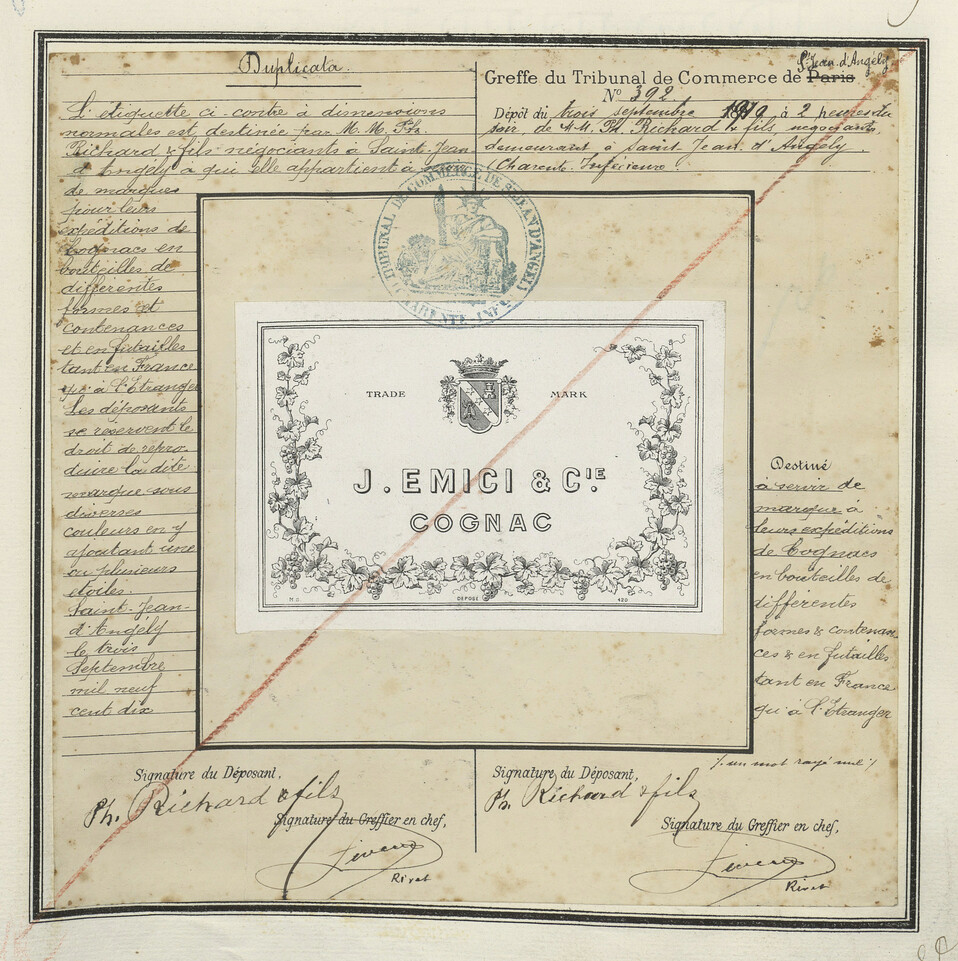 Duplicata.
L'étiquette ci-contre à dimensions
normales est destinée par M. M. Ph.
Richard & fils négociants à Saint-Jean
d'Angély à qui elle appartient à servir
de marques
pour leurs
expéditions de
Cognacs en
bouteilles de
différentes
formes et
contenances
et en futailles
tant en France
qu'à l'Etranger
Les déposants
se réservent le
droit de repro-
duire la dite
marque sous
diverses
couleurs en y
ajoutant une
ou plusieurs
étoiles.
Saint-Jean-
d'Angély
le trois
Septembre
mil neuf
cent dix
St Jean d'Angély
Greffe du Tribunal de Commerce de Paris
No 392
Dépôt du trois septembre 1910 à 2 heures du
soir, de M.M. Ph. Richard & fils, négociants,
demeurant à Saint Jean d'Angély
(Charente Inférieure
TRIBUNAL DE COMMERCE DE St JEAN D'ANGELY
CHARENTE INFRE
TRADE MARK
J. EMICI & CIE.
COGNAC
M.C. DÉPOSÉ 420
Destiné
à servir de
marque à
leurs expéditions
de Cognacs
en bouteilles de
différentes
formes & contenan-
ces & en futailles
tant en France
qu'à l'Etranger
un mot rayé nul
Signature du Déposant,
Ph. Richard & fils
Signature du Greffier en chef,
Rivet
Signature du Déposant,
Ph. Richard & fils
Signature du Greffier en chef,
Rivet